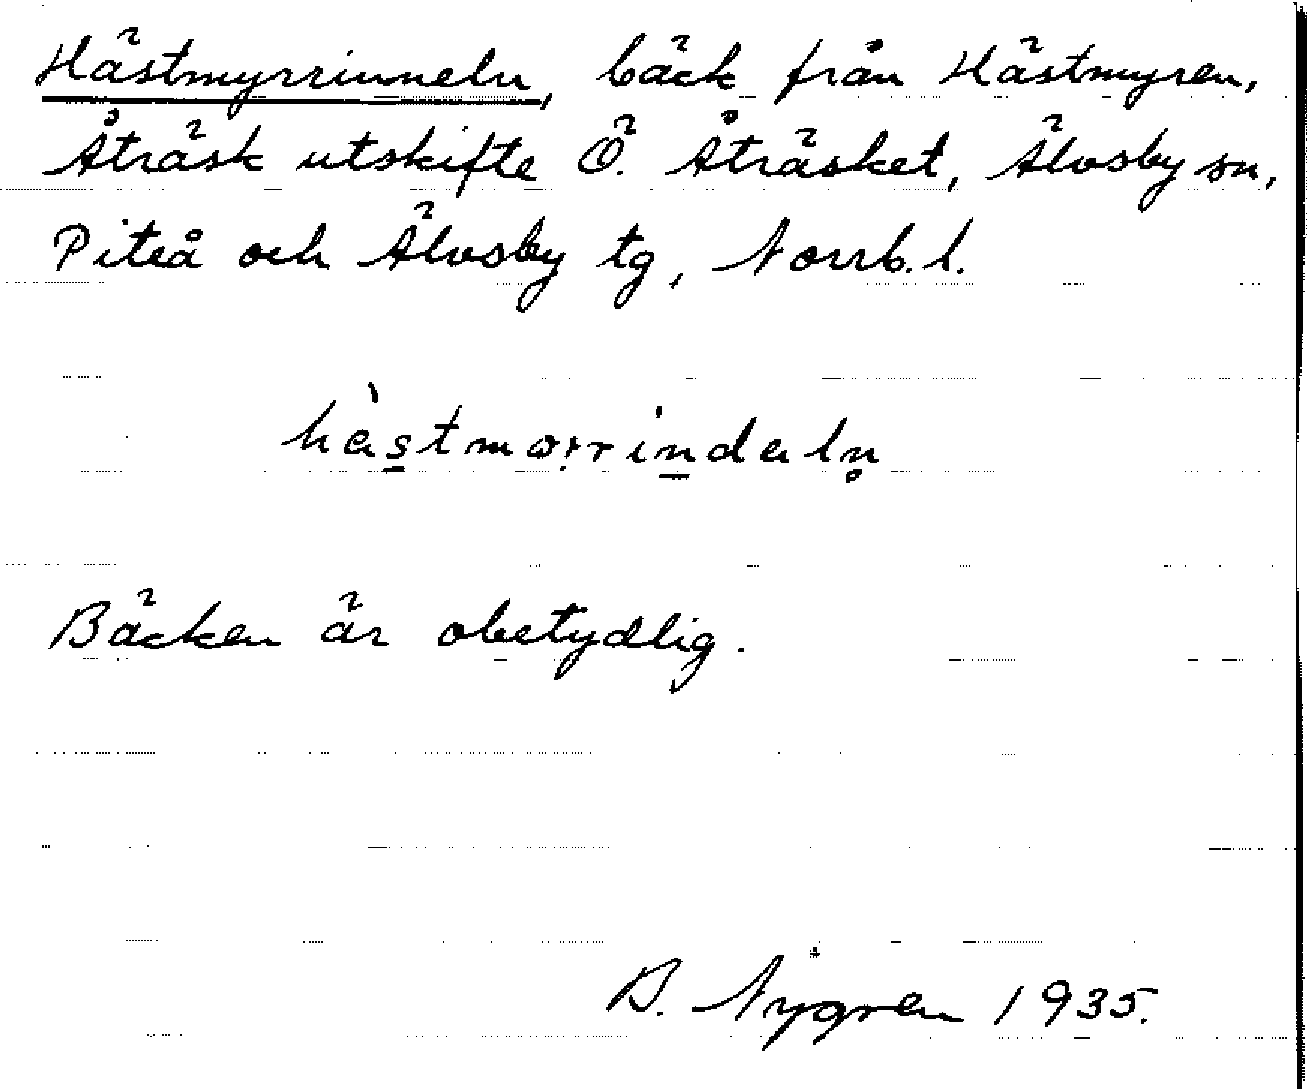 Hästmyrrinneln, bäck från Hästmyren,
Åträsk utskifte Ö. Åträsket, Älvsby sn,
Piteå och Älvsby tg, Norrb. l.
Bäcken är obetydlig.
B. Nygren 1935.